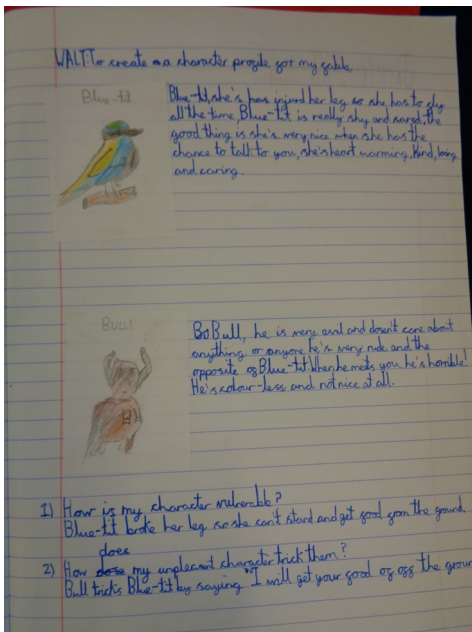 WALT: To create a character profile for my fable.
Blue-tit
Blue-tit, she's has injurd her leg so she has to fly
all the time, Blue-tit is really shy and scared, the
good thing is she's very nice when she has the
chance to talk to you, she's heart warming, kind, loving
and caring.
BULL!
Bull, he is very evil and doesn't care about
anything or anyone he's very rude and the
opposite of Blue-tit. When he meets you he's horrible!
He's colour-less and not nice at all.
1) How is my character vulnerable?
Blue-tit broke her leg so she can't stand and get food from the ground.
does
2) How my unpleasant character trick them?
Bull tricks Blue-tit by saying "I will get your food of off the groun